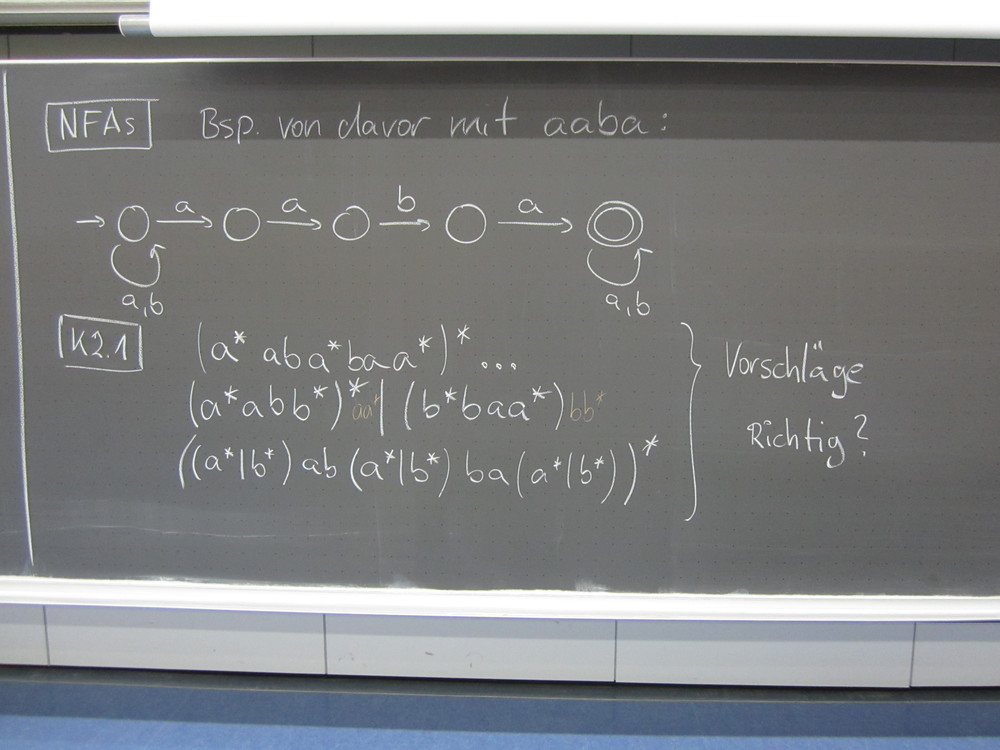 NFAs Bsp. von davor mit aaba:
a a b a
a,b a,b
K2.1 (a* aba*baa*)* ...
(a*abb*)*aa* | (b*baa*)bb*
((a*|b*) ab (a*|b*) ba (a*|b*))*
Vorschläge
Richtig?